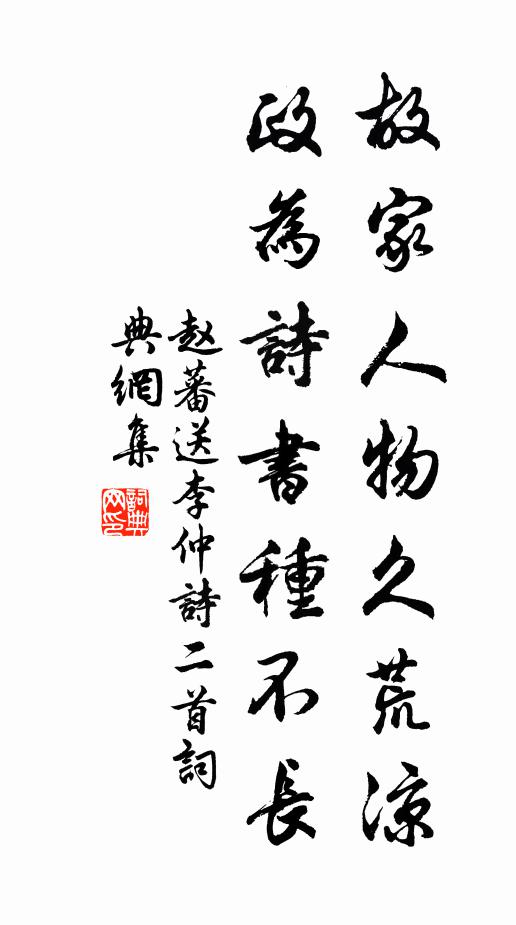 故家人物久荒凉
政為詩書種不長
赵蕃送李仲詩二首詞
典網集
詞典网印